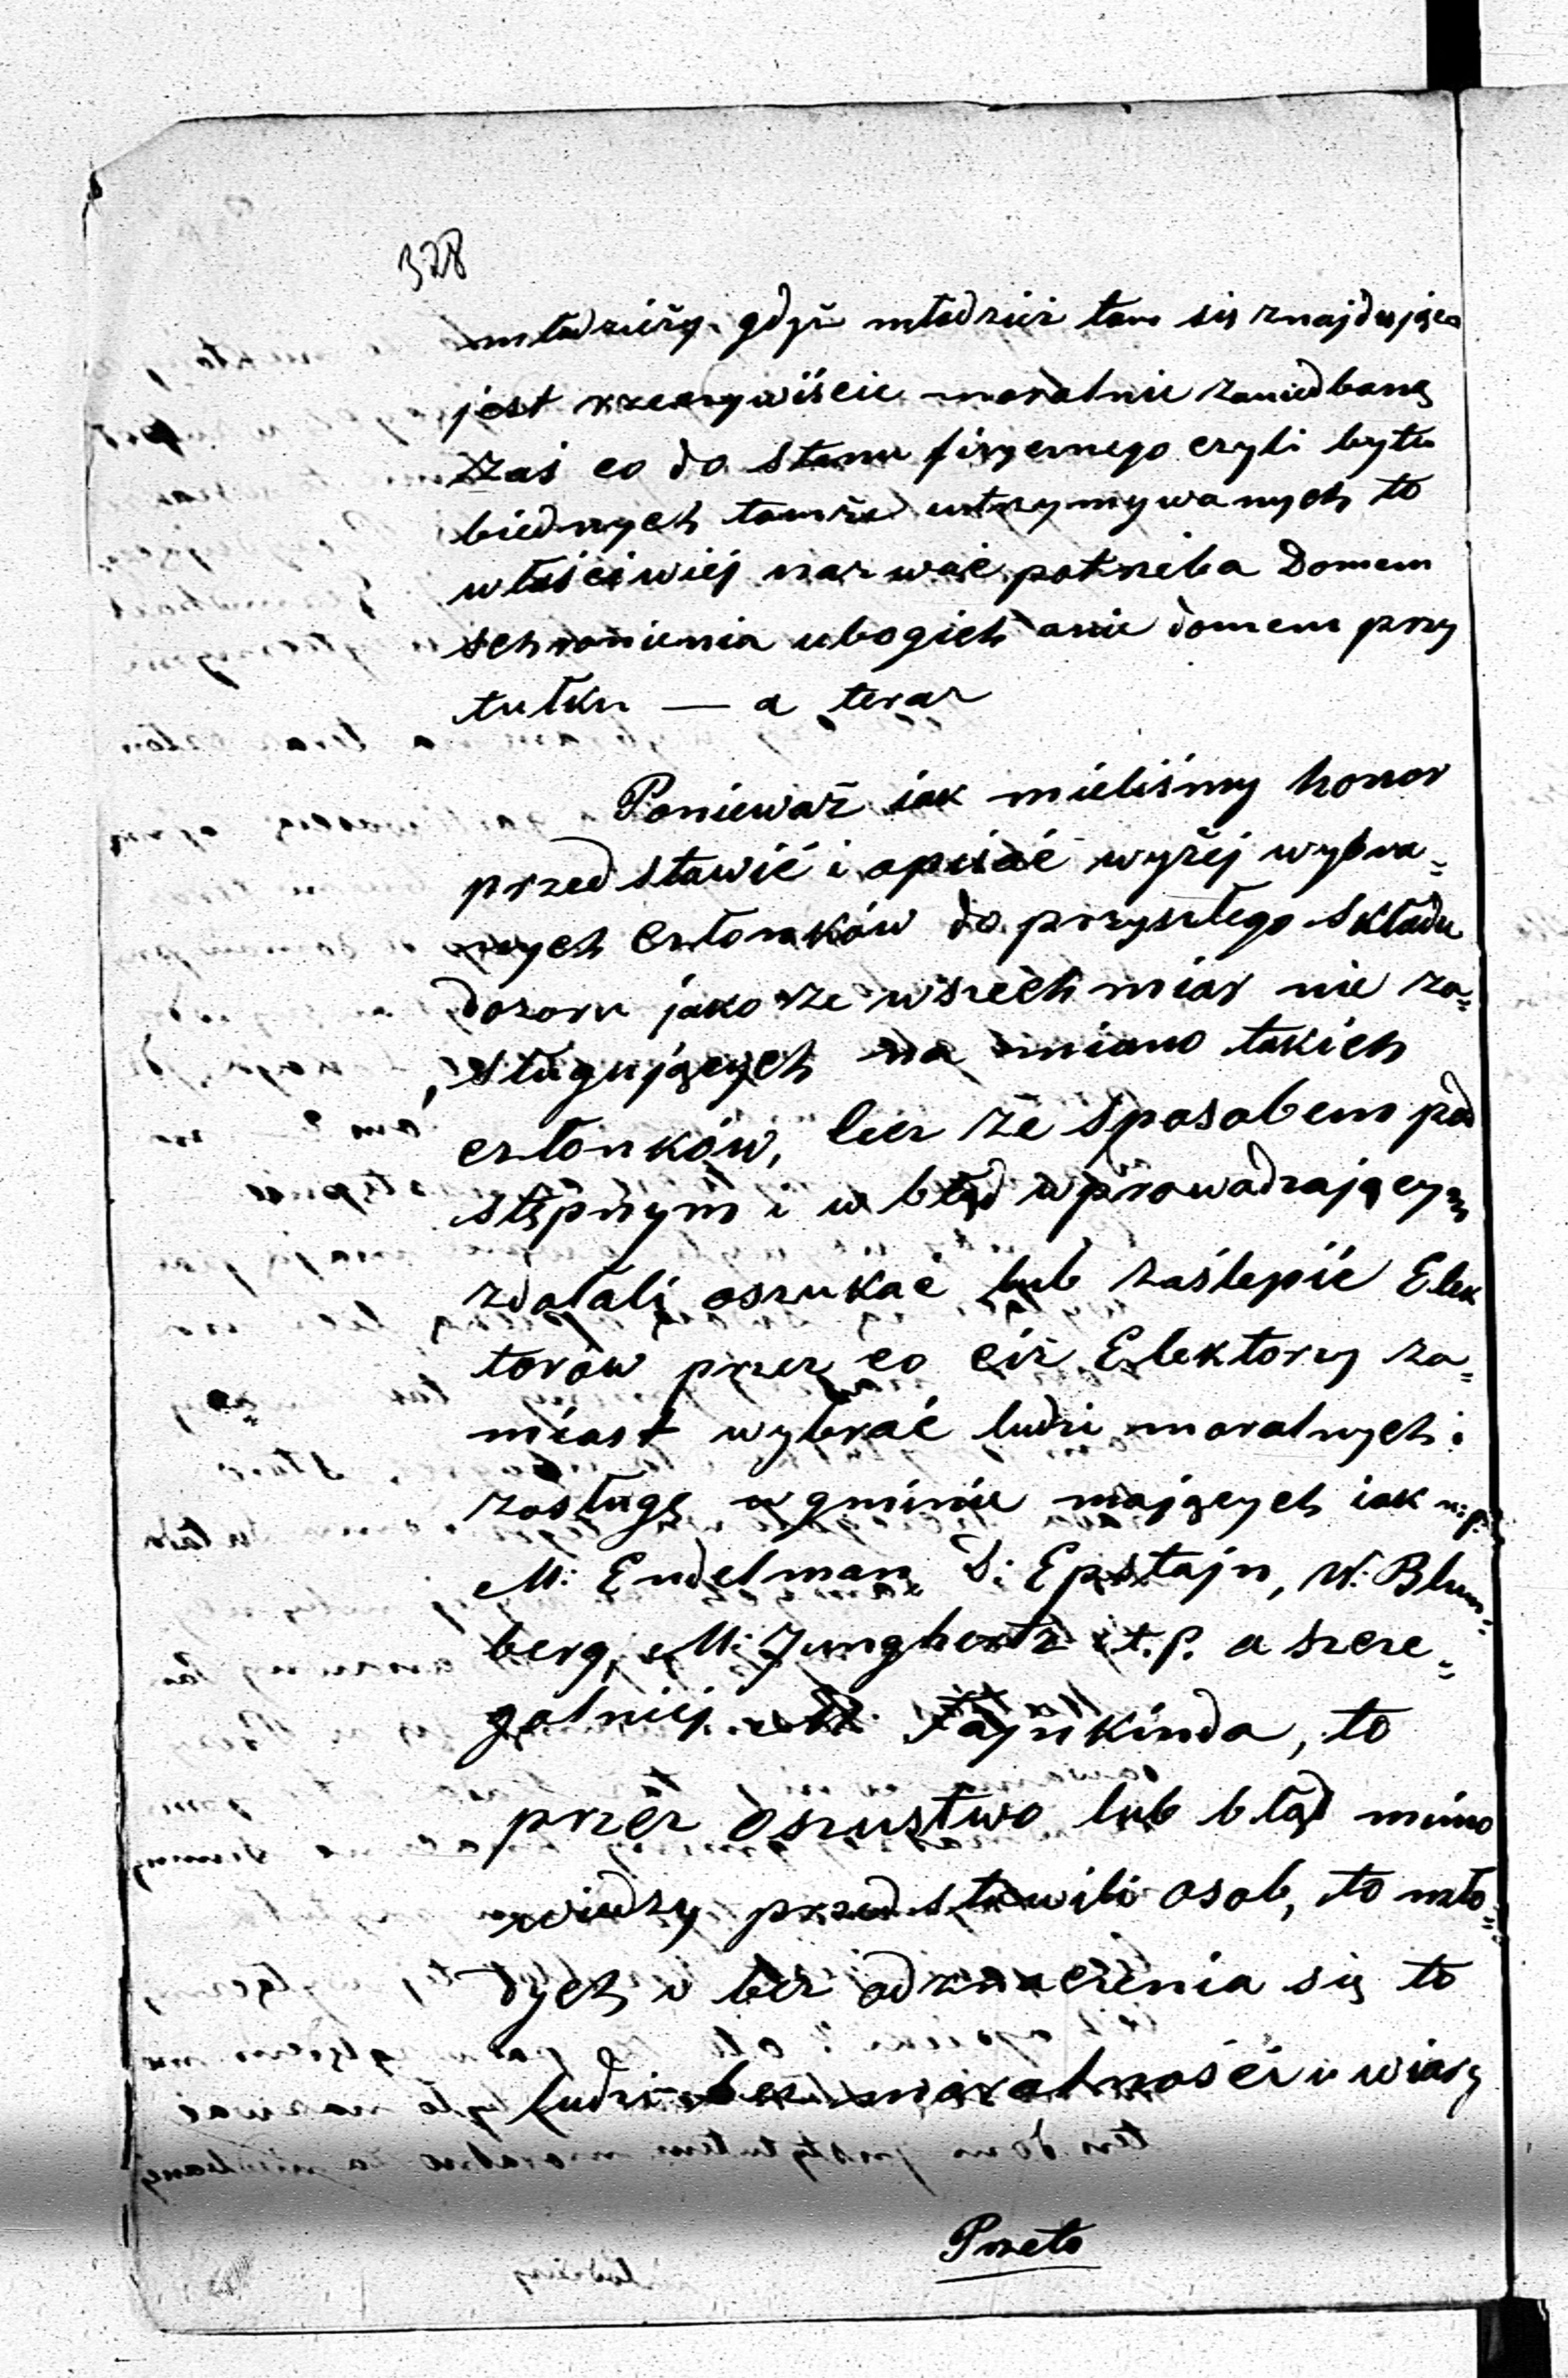 328
młodzieży. gdyż młodzież tam się znajdująca
jest rzeczywiście moralnie zaniedbaną
zaś co do stanu fizycznego czyli bytu
biednych tamże utrzymywanych to
właściwiej nazwać potrzeba Domem
schronienia ubogich anie domem przy
tułku — a teraz
Ponieważ iak mieliśmy honor
przedstawić i opisać wyżej wybra=
nych członków do przyszłego składu
dozoru jako ze wszech miar nie za=
sługujących na miano takich
członków, lecz że sposobem pod
stępnym i w błąd wprowadzającym
zdołali oszukać lub zaślepić Elek
torów przez co ciż Elektorzy za=
miast wybrać ludzi moralnych i
zasługę w gminie mających iak n:p:
M: Endelman S: Epstajn, W: Blum=
berg, M: Junghertz i t.p. a szcze=
gólniej Fajnkinda, to
przez oszustwo lub błąd mimo
wiedzy przedstawili osob, to mło=
dych i bez odznaczenia się to
ludzi bez moralności i wiary
Przeto